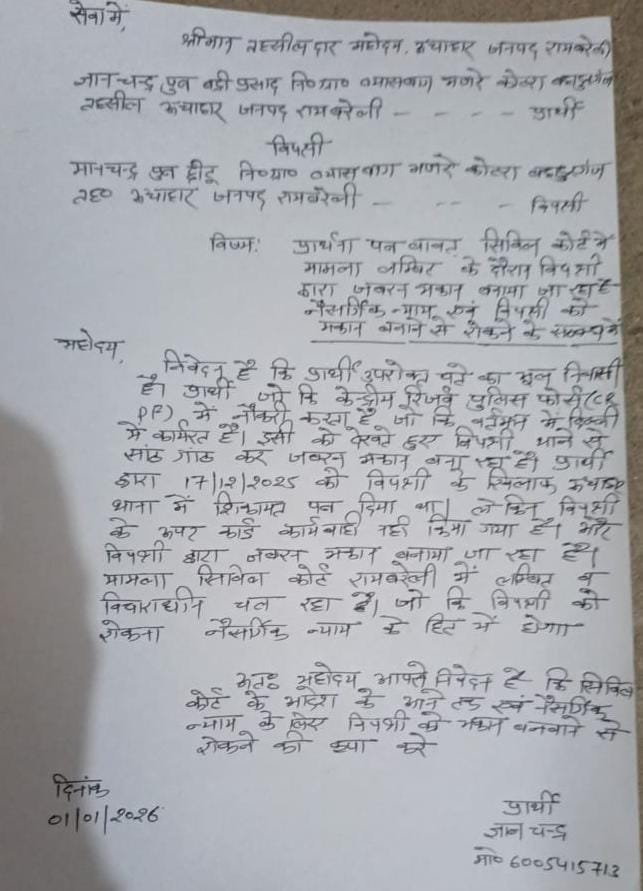 सेवा में,
श्रीमान तहसीलदार महोदय, ऊचाहार जनपद रायबरेली
ज्ञानचन्द्र पुत्र बद्री प्रसाद नि०ग्रा० व्यासबाग मजरे कोटरा बहादुरगंज
तहसील ऊचाहार जनपद रायबरेली - - - - - प्रार्थी
विपक्षी
मानचन्द्र पुत्र छीटू नि०ग्रा० व्यासबाग मजरे कोटरा बहादुरगंज
तह० ऊचाहार जनपद रायबरेली - - - - विपक्षी
विषय: प्रार्थना पत्र बावत् सिविल कोर्ट में
मामला लम्बित के दौरान विपक्षी
द्वारा जबरन मकान बनाया जा रहा है
नैसर्गिक न्याय एवं विपक्षी को
मकान बनाने से रोकने के सम्बन्ध में
महोदय,
निवेदन है कि प्रार्थी उपरोक्त पते का मूल निवासी
है। प्रार्थी जो कि केन्द्रीय रिजर्व पुलिस फोर्स (CR
PF) में नौकरी करता है जो कि वर्तमान में दिल्ली
में कार्यरत है। इसी को देखते हुए विपक्षी थाने से
सांठ गांठ कर जबरन मकान बना रहा है। प्रार्थी
द्वारा 17/12/2025 को विपक्षी के खिलाफ ऊचाहार
थाना में शिकायत पत्र दिया था। लेकिन विपक्षी
के ऊपर कोई कार्यवाही नही किया गया है। और
विपक्षी द्वारा जबरन मकान बनाया जा रहा है।
मामला सिविल कोर्ट रायबरेली में लम्बित व
विचाराधीन चल रहा है। जो कि विपक्षी को
रोकना नैसर्गिक न्याय के हित में होगा
अतः महोदय आपसे निवेदन है कि सिविल
कोर्ट के आदेश के आने तक एवं नैसर्गिक
न्याय के लिए विपक्षी को मकान बनवाने से
रोकने की कृपा करे
दिनांक
01/01/2026
प्रार्थी
ज्ञान चन्द्र
मो० 6005415713